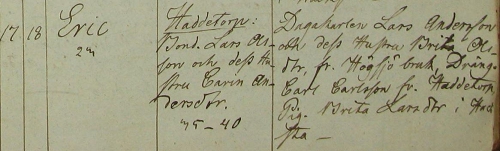 17 18 Eric
2m
Haddetorp:
Bond. Lars Ol-
son och dess Hu-
stru Carin An-
dersdr.
m 5 – 40
Dagakarlen Lars Andersson
och dess Hustru Brita Ol-
dtr. fr. Högsjö bruk, Dräng.
Carl Carlsson fr. Haddetorp,
Pig. Brita Larsdtr i Had
sta –